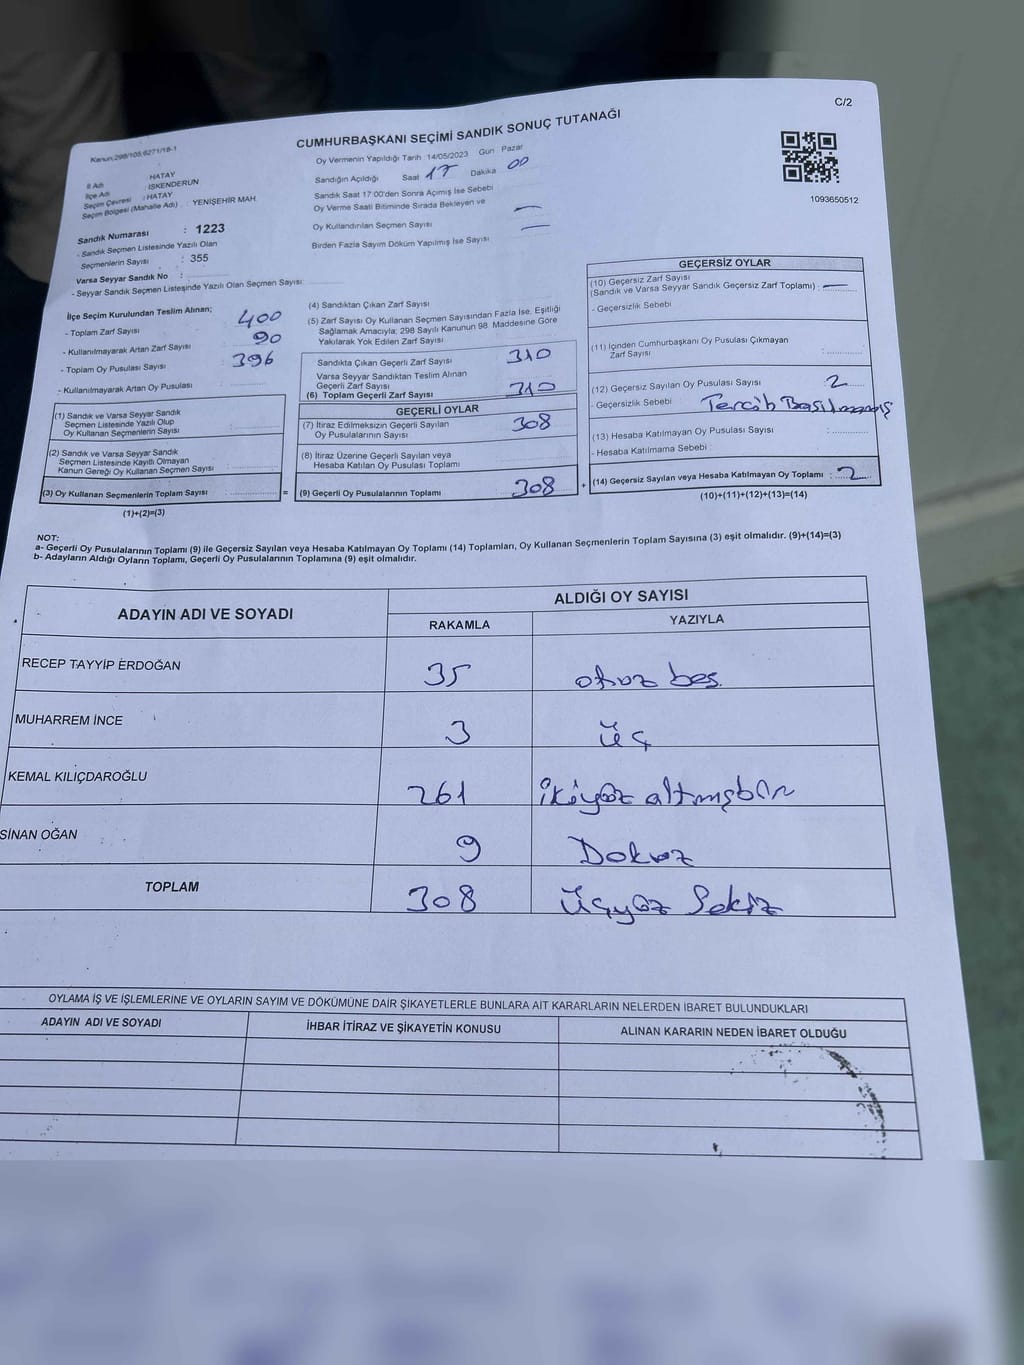 C/2
CUMHURBAŞKANI SEÇİMİ SANDIK SONUÇ TUTANAĞI
Kanun:298/105,6271/18-1
Oy Vermenin Yapıldığı Tarih 14/05/2023 Gün Pazar
Sandığın Açıldığı Saat 17 Dakika 00
Sandık Saat 17:00'den Sonra Açımış İse Sebebi
Oy Verme Saati Bitiminde Sırada Bekleyen ve
Oy Kullandırılan Seçmen Sayısı —
Birden Fazla Sayım Döküm Yapılmış İse Sayısı —
1093650512
İl Adı : HATAY
İlçe Adı : İSKENDERUN
Seçim Çevresi : HATAY
Seçim Bölgesi (Mahalle Adı) : YENİŞEHİR MAH.
Sandık Numarası : 1223
- Sandık Seçmen Listesinde Yazılı Olan
Seçmenlerin Sayısı : 355
Varsa Seyyar Sandık No :
- Seyyar Sandık Seçmen Listesinde Yazılı Olan Seçmen Sayısı:
İlçe Seçim Kurulundan Teslim Alınan;
- Toplam Zarf Sayısı 400
- Kullanılmayarak Artan Zarf Sayısı 90
- Toplam Oy Pusulası Sayısı 396
- Kullanılmayarak Artan Oy Pusulası
(1) Sandık ve Varsa Seyyar Sandık
Seçmen Listesinde Yazılı Olup
Oy Kullanan Seçmenlerin Sayısı
(2) Sandık ve Varsa Seyyar Sandık
Seçmen Listesinde Kayıtlı Olmayan
Kanun Gereği Oy Kullanan Seçmen Sayısı
(3) Oy Kullanan Seçmenlerin Toplam Sayısı : =
(1)+(2)=(3)
(4) Sandıktan Çıkan Zarf Sayısı
(5) Zarf Sayısı Oy Kullanan Seçmen Sayısından Fazla İse, Eşitliği
Sağlamak Amacıyla; 298 Sayılı Kanunun 98. Maddesine Göre
Yakılarak Yok Edilen Zarf Sayısı
Sandıkta Çıkan Geçerli Zarf Sayısı 310
Varsa Seyyar Sandıktan Teslim Alınan
Geçerli Zarf Sayısı
(6) Toplam Geçerli Zarf Sayısı 310
GEÇERLİ OYLAR
(7) İtiraz Edilmeksizin Geçerli Sayılan
Oy Pusulalarının Sayısı 308
(8) İtiraz Üzerine Geçerli Sayılan veya
Hesaba Katılan Oy Pusulası Toplamı
(9) Geçerli Oy Pusulalarının Toplamı 308 +
GEÇERSİZ OYLAR
(10) Geçersiz Zarf Sayısı
(Sandık ve Varsa Seyyar Sandık Geçersiz Zarf Toplamı) : —
- Geçersizlik Sebebi
(11) İçinden Cumhurbaşkanı Oy Pusulası Çıkmayan
Zarf Sayısı :
(12) Geçersiz Sayılan Oy Pusulası Sayısı : 2
- Geçersizlik Sebebi Tercih Basılmamış
(13) Hesaba Katılmayan Oy Pusulası Sayısı :
- Hesaba Katılmama Sebebi :
(14) Geçersiz Sayılan veya Hesaba Katılmayan Oy Toplamı : 2
(10)+(11)+(12)+(13)=(14)
NOT:
a- Geçerli Oy Pusulalarının Toplamı (9) ile Geçersiz Sayılan veya Hesaba Katılmayan Oy Toplamı (14) Toplamları, Oy Kullanan Seçmenlerin Toplam Sayısına (3) eşit olmalıdır. (9)+(14)=(3)
b- Adayların Aldığı Oyların Toplamı, Geçerli Oy Pusulalarının Toplamına (9) eşit olmalıdır.
ADAYIN ADI VE SOYADI ALDIĞI OY SAYISI
RAKAMLA YAZIYLA
RECEP TAYYİP ERDOĞAN 35 otuz beş.
MUHARREM İNCE 3 üç
KEMAL KILIÇDAROĞLU 261 ikiyüz altmışbir
SİNAN OĞAN 9 Dokuz
TOPLAM 308 üçyüz Sekiz
OYLAMA İŞ VE İŞLEMLERİNE VE OYLARIN SAYIM VE DÖKÜMÜNE DAİR ŞİKAYETLERLE BUNLARA AİT KARARLARIN NELERDEN İBARET BULUNDUKLARI
ADAYIN ADI VE SOYADI İHBAR İTİRAZ VE ŞİKAYETİN KONUSU ALINAN KARARIN NEDEN İBARET OLDUĞU